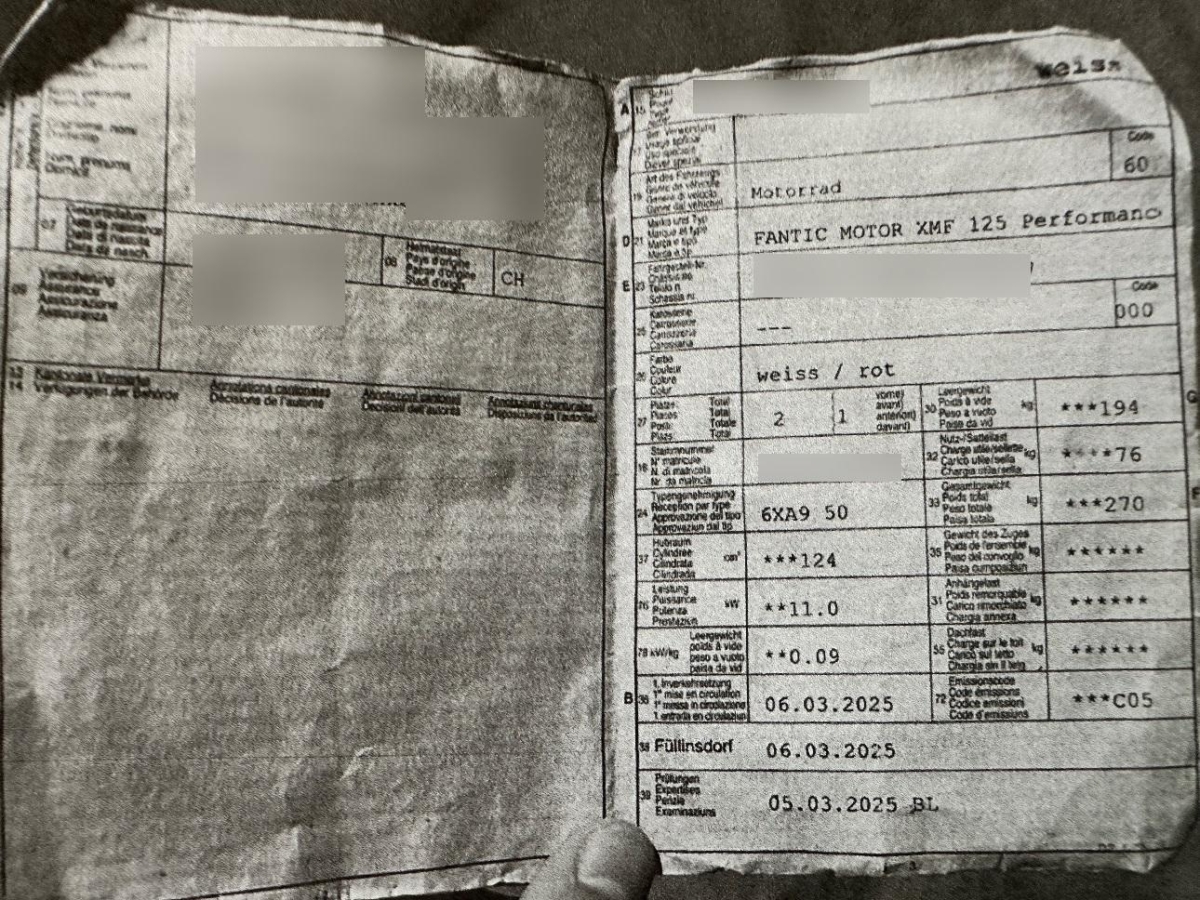 Num, prenums
Domicil
07
Date de naissance
Data da nasch.
08
Heimatstaat
Pays d'origine
Paese d'origine
Stadi d'origin
CH
09
Versicherung
Assurance
Assicurazione
Assicuranza
13 Kantonale Vermerke
14 Verfügungen der Behörde
Annotations cantonales
Décisions de l'autorité
Annotazioni cantonali
Decisioni dell'autorità
Annotaziuns chantunalas
Disposiziuns da l'autoritad
weiss
A 15
Code
60
19
Art des Fahrzeugs
Genre de véhicule
Genere di veicolo
Gener dal vehichel
Motorrad
D 21
Marke und Typ
Marque et type
Marca e tipo
Marca e tip
FANTIC MOTOR XMF 125 Performanc
E 23
Fahrgestell-Nr.
Châssis no
Telaio n.
Schassis nr.
Code
25
Karosserie
Carrosserie
Carrozzeria
Carossaria
---
000
26
Farbe
Couleur
Colore
Colur
weiss / rot
27
Plätze Total
Places Total
Posti Totale
Plazs Total
2
1
vorne)
avant)
anteriori)
davant)
30
Leergewicht
Poids à vide
Peso a vuoto
Paisa da vid
kg
***194
G
18
Stammnummer
N° matricule
N. di matricola
Nr. da matricla
32
Nutz-/Sattellast
Charge utile/sellette
Carico utile/sella
Chargia utila/sella
kg
****76
24
Typengenehmigung
Réception par type
Approvazione del tipo
Approvaziun dal tip
6XA9 50
33
Gesamtgewicht
Poids total
Peso totale
Paisa totala
kg
***270
F
37
Hubraum
Cylindrée
Cilindrata
Cilindrada
cm³
***124
35
Gewicht des Zuges
Poids de l'ensemble
Peso del convoglio
Paisa cumposiziun
kg
******
76
Leistung
Puissance
Potenza
Prestaziun
kW
**11.0
31
Anhängelast
Poids remorquable
Carico rimorchiato
Chargia annexa
kg
******
78 kW/kg
Leergewicht
poids à vide
peso a vuoto
paisa da vid
**0.09
55
Dachlast
Charge sur le toit
Carico sul tetto
Chargia sin il tetg
kg
******
B 36
1. Inverkehrsetzung
1re mise en circulation
1a messa in circolazione
1. entrada en circulaziun
06.03.2025
72
Emissionscode
Code émissions
Codice emissioni
Code d'emissiuns
***C05
38 Füllinsdorf
06.03.2025
39
Prüfungen
Expertises
Perizie
Examinaziuns
05.03.2025 BL